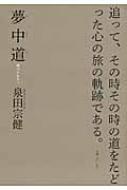 追って、その時その時の道をたど
った心の旅の軌跡である。
夢中道
泉田宗健